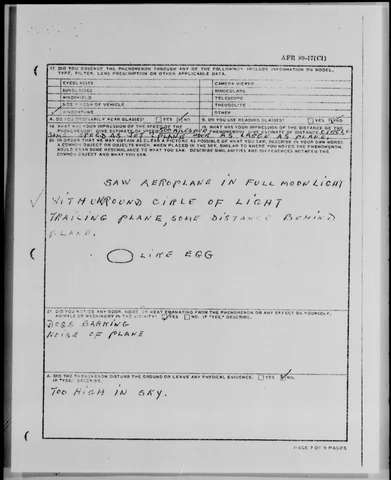 AFR 80-17(C1)
17. DID YOU OBSERVE THE PHENOMENON THROUGH ANY OF THE FOLLOWING? INCLUDE INFORMATION ON MODEL, TYPE, FILTER, LENS PRESCRIPTION OR OTHER APPLICABLE DATA.
EYEGLASSES CAMERA VIEWER
SUNGLASSES BINOCULARS
WINDSHIELD TELESCOPE
SIDE WINDOW OF VEHICLE THEODOLITE
WINDOWPANE OTHER
A. DO YOU ORDINARILY WEAR GLASSES? YES NO B. DO YOU USE READING GLASSES? YES NO
18. WHAT WAS YOUR IMPRESSION OF THE SPEED OF THE PHENOMENON? GIVE ESTIMATE OF SPEED
19. WHAT WAS YOUR IMPRESSION OF THE DISTANCE OF THE PHENOMENON? GIVE ESTIMATE OF DISTANCE
SPEED AS JET PLANE AS LARGE AS PLANE
20. IN ORDER THAT WE MAY OBTAIN AS CLEAR A PICTURE AS POSSIBLE OF WHAT YOU SAW, DESCRIBE IN YOUR OWN WORDS A COMMON OBJECT OR OBJECTS WHICH, WHEN PLACED IN THE SKY, SIMILAR TO WHERE YOU NOTED THE PHENOMENON, WOULD BEAR SOME RESEMBLANCE TO WHAT YOU SAW. DESCRIBE SIMILARITIES AND DIFFERENCES BETWEEN THE COMMON OBJECT AND WHAT YOU SAW.
SAW AEROPLANE IN FULL MOONLIGHT
WITH UNROUND CIRLE OF LIGHT
TRAILING PLANE, SOME DISTANCE BEHIND
PLANE.
LIKE EGG
21. DID YOU NOTICE ANY ODOR, NOISE, OR HEAT EMANATING FROM THE PHENOMENON OR ANY EFFECT ON YOURSELF, ANIMALS OR MACHINERY IN THE VICINITY? YES NO. IF "YES," DESCRIBE.
DOGS BARKING
NOISE OF PLANE
A. DID THE PHENOMENON DISTURB THE GROUND OR LEAVE ANY PHYSICAL EVIDENCE. YES NO.
IF "YES," DESCRIBE.
TOO HIGH IN SKY.
PAGE 7 OF 9 PAGES